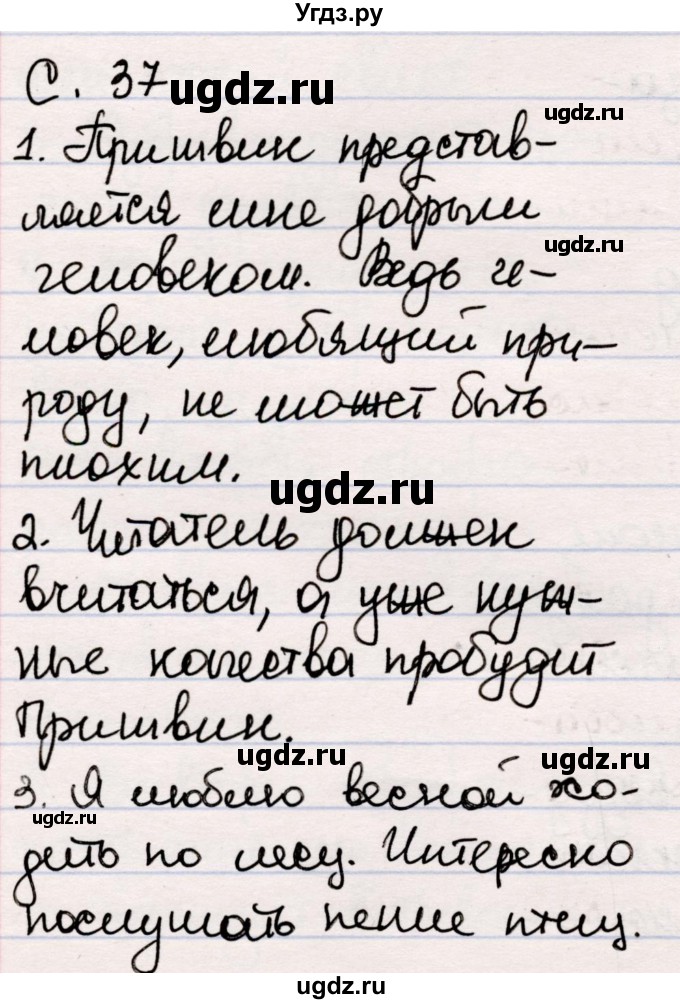 Угдз.ру
С. 37 ugdz.ru
ugdz.ru
1. Пришвин представ-
ляется мне добрым
ugdz.ru
человеком. Ведь че-
ловек, любящий при-
роду, не может быть
плохим.
ugdz.ru
2. Читатель должен
вчитаться, а уже нуж-
ные качества пробудит
Пришвин.
ugdz.ru ugdz.ru
3. Я люблю весной хо-
ugdz.ru
дить по лесу. Интересно
послушать пение птиц.
ugdz.ru